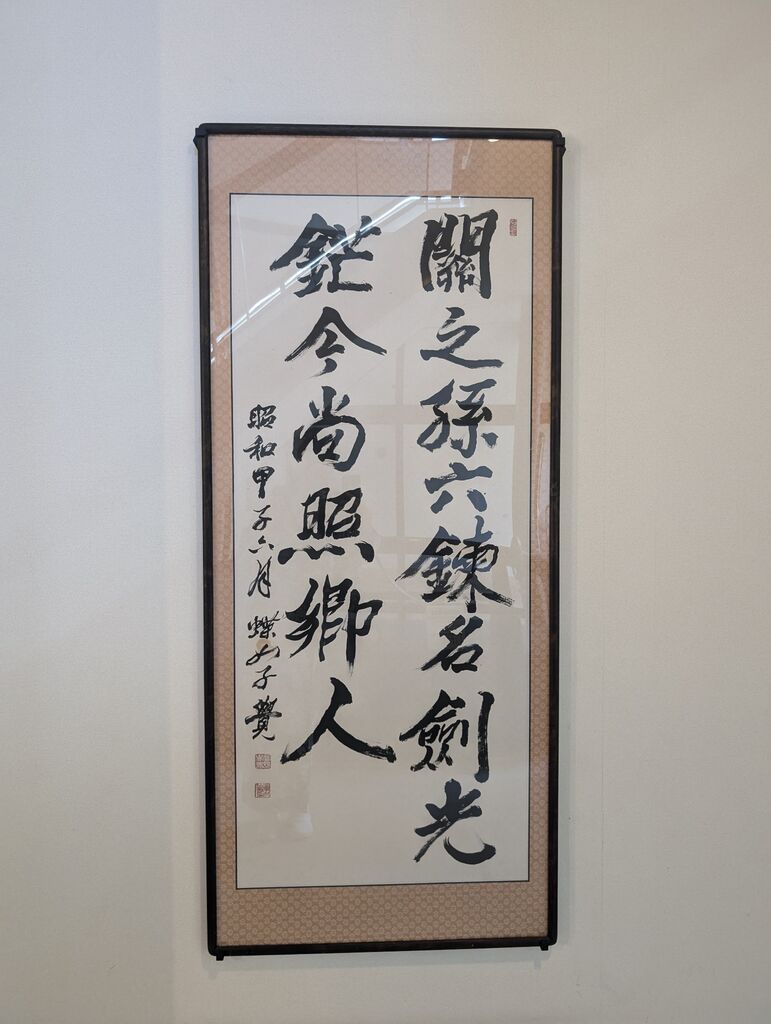 關之孫六鍊名劍光
鋩今尚照鄉人
昭和甲子六月 蝶如子覺